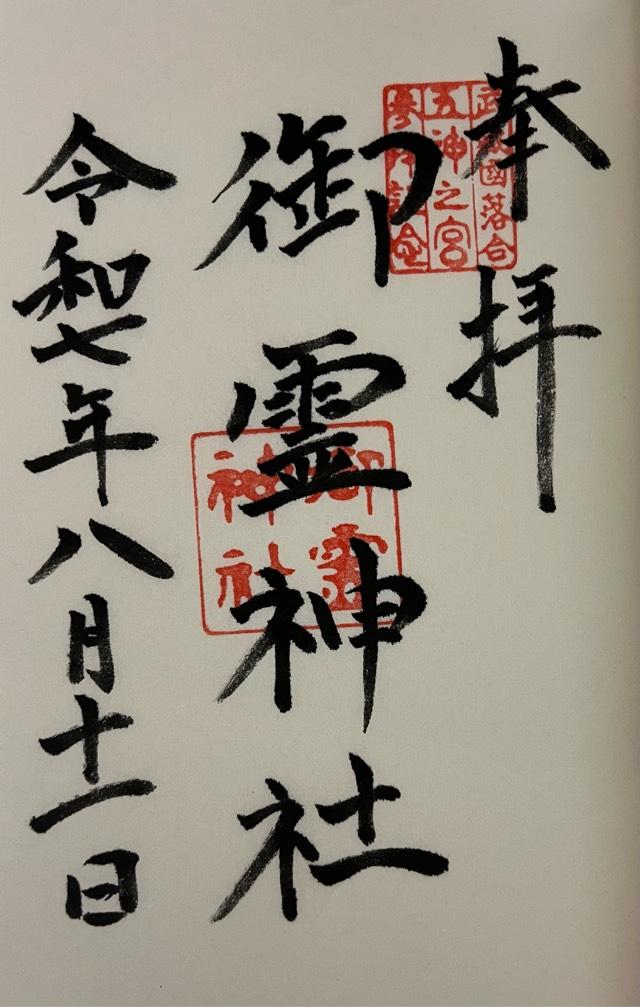 奉拝
武蔵國落合
五神之宮
参拝記念
御霊神社
御霊神社
令和七年八月十一日